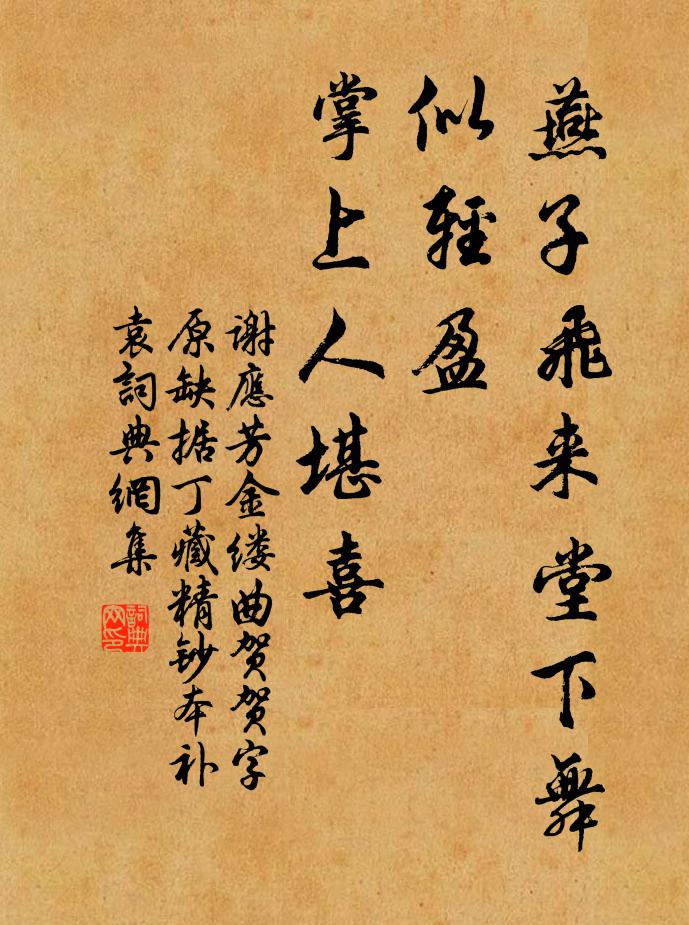 燕子飛来堂下舞
似輕盈
掌上人堪喜
谢應芳金缕曲贺贺字
原缺据丁藏精鈔本补
袁詞典網集
詞典網印